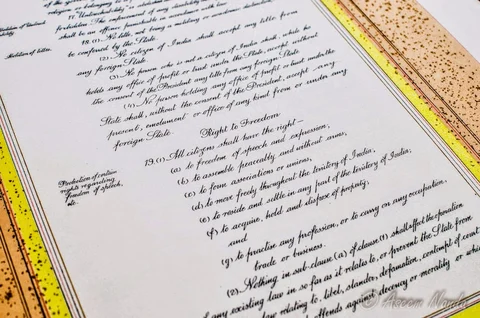 17. "Untouchability" is abolished and its
forbidden. The enforcement of any disability
shall be an offence punishable in accordance with law.
Abolition of titles. 18. (1) No title, not being a military or academic distinction,
be conferred by the State.
(2) No citizen of India shall accept any title from
any foreign State.
(3) No person who is not a citizen of India shall, while he
holds any office of profit or trust under the State, accept without
the consent of the President any title from any foreign State.
(4) No person holding any office of profit or trust under the
State shall, without the consent of the President, accept any
present, emolument or office of any kind from or under any
foreign State.
Right to Freedom
Protection of certain
rights regarding
freedom of speech,
etc.
19. (1) All citizens shall have the right—
(a) to freedom of speech and expression;
(b) to assemble peaceably and without arms;
(c) to form associations or unions;
(d) to move freely throughout the territory of India;
(e) to reside and settle in any part of the territory of India;
(f) to acquire, hold and dispose of property;
and
(g) to practise any profession, or to carry on any occupation,
trade or business.
(2) Nothing in sub-clause (a) of clause (1) shall affect the operation
of any existing law in so far as it relates to, or prevent the State from
law relating to, libel, slander, defamation, contempt of court
offends against decency or morality or which